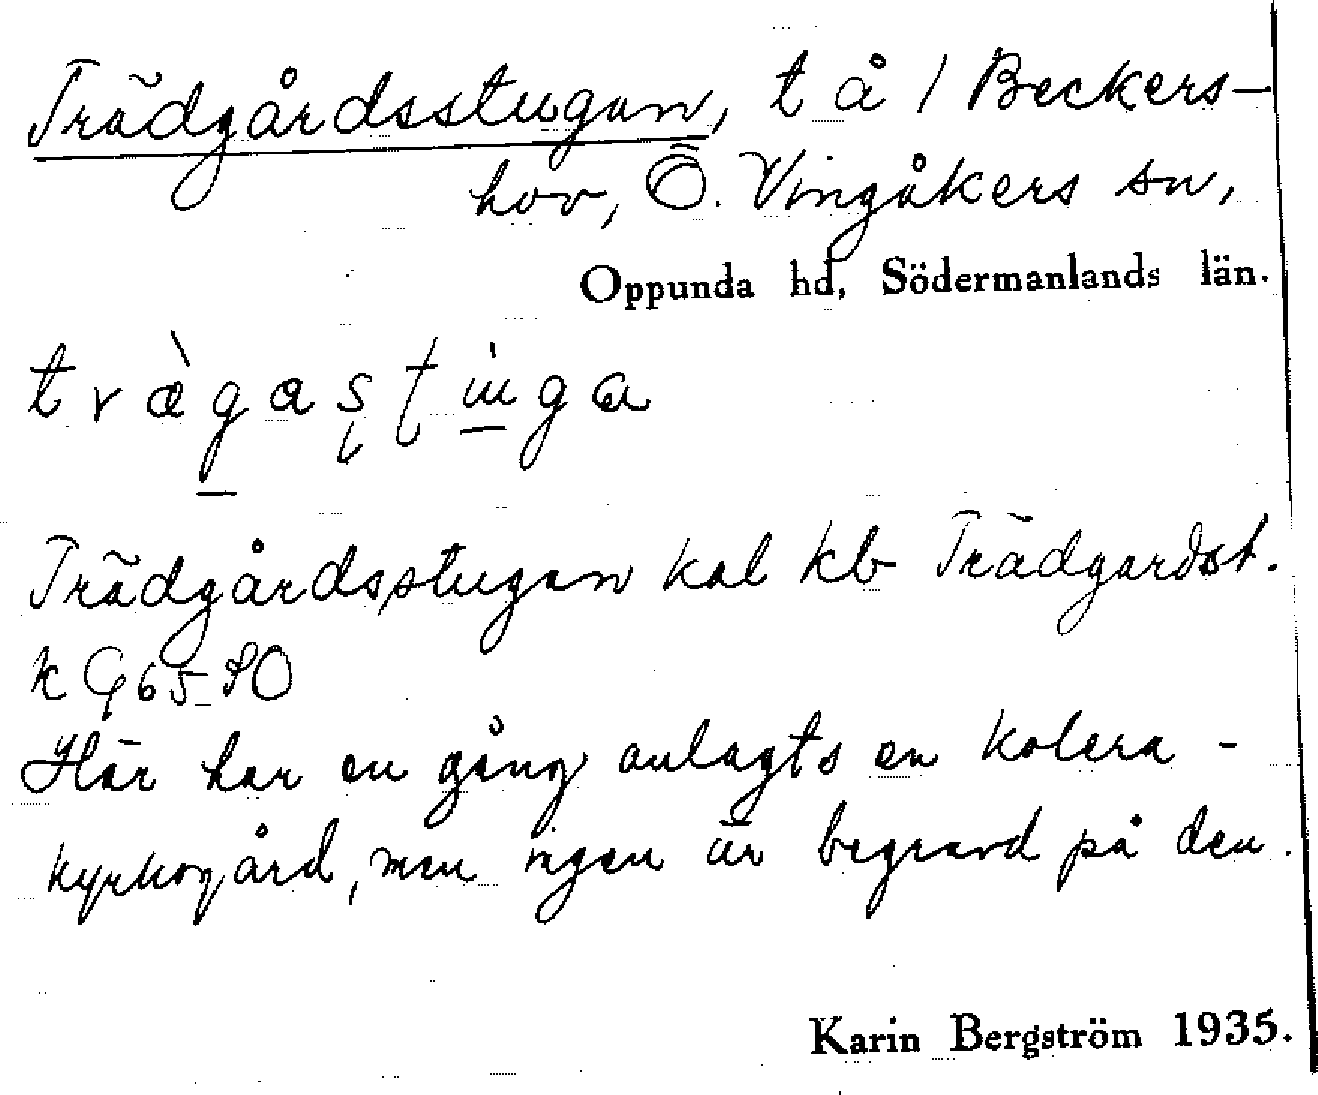 Trädgårdsstugan, t å 1 Beckers-
hov, Ö. Vingåkers sn,
Oppunda hd, Södermanlands län.
Trädgårdsstugan kal kb Trädgardst.
k G 65 SO
Här har en gång anlagts en kolera -
kyrkogård, men ingen är begravd på den.
Karin Bergström 1935.